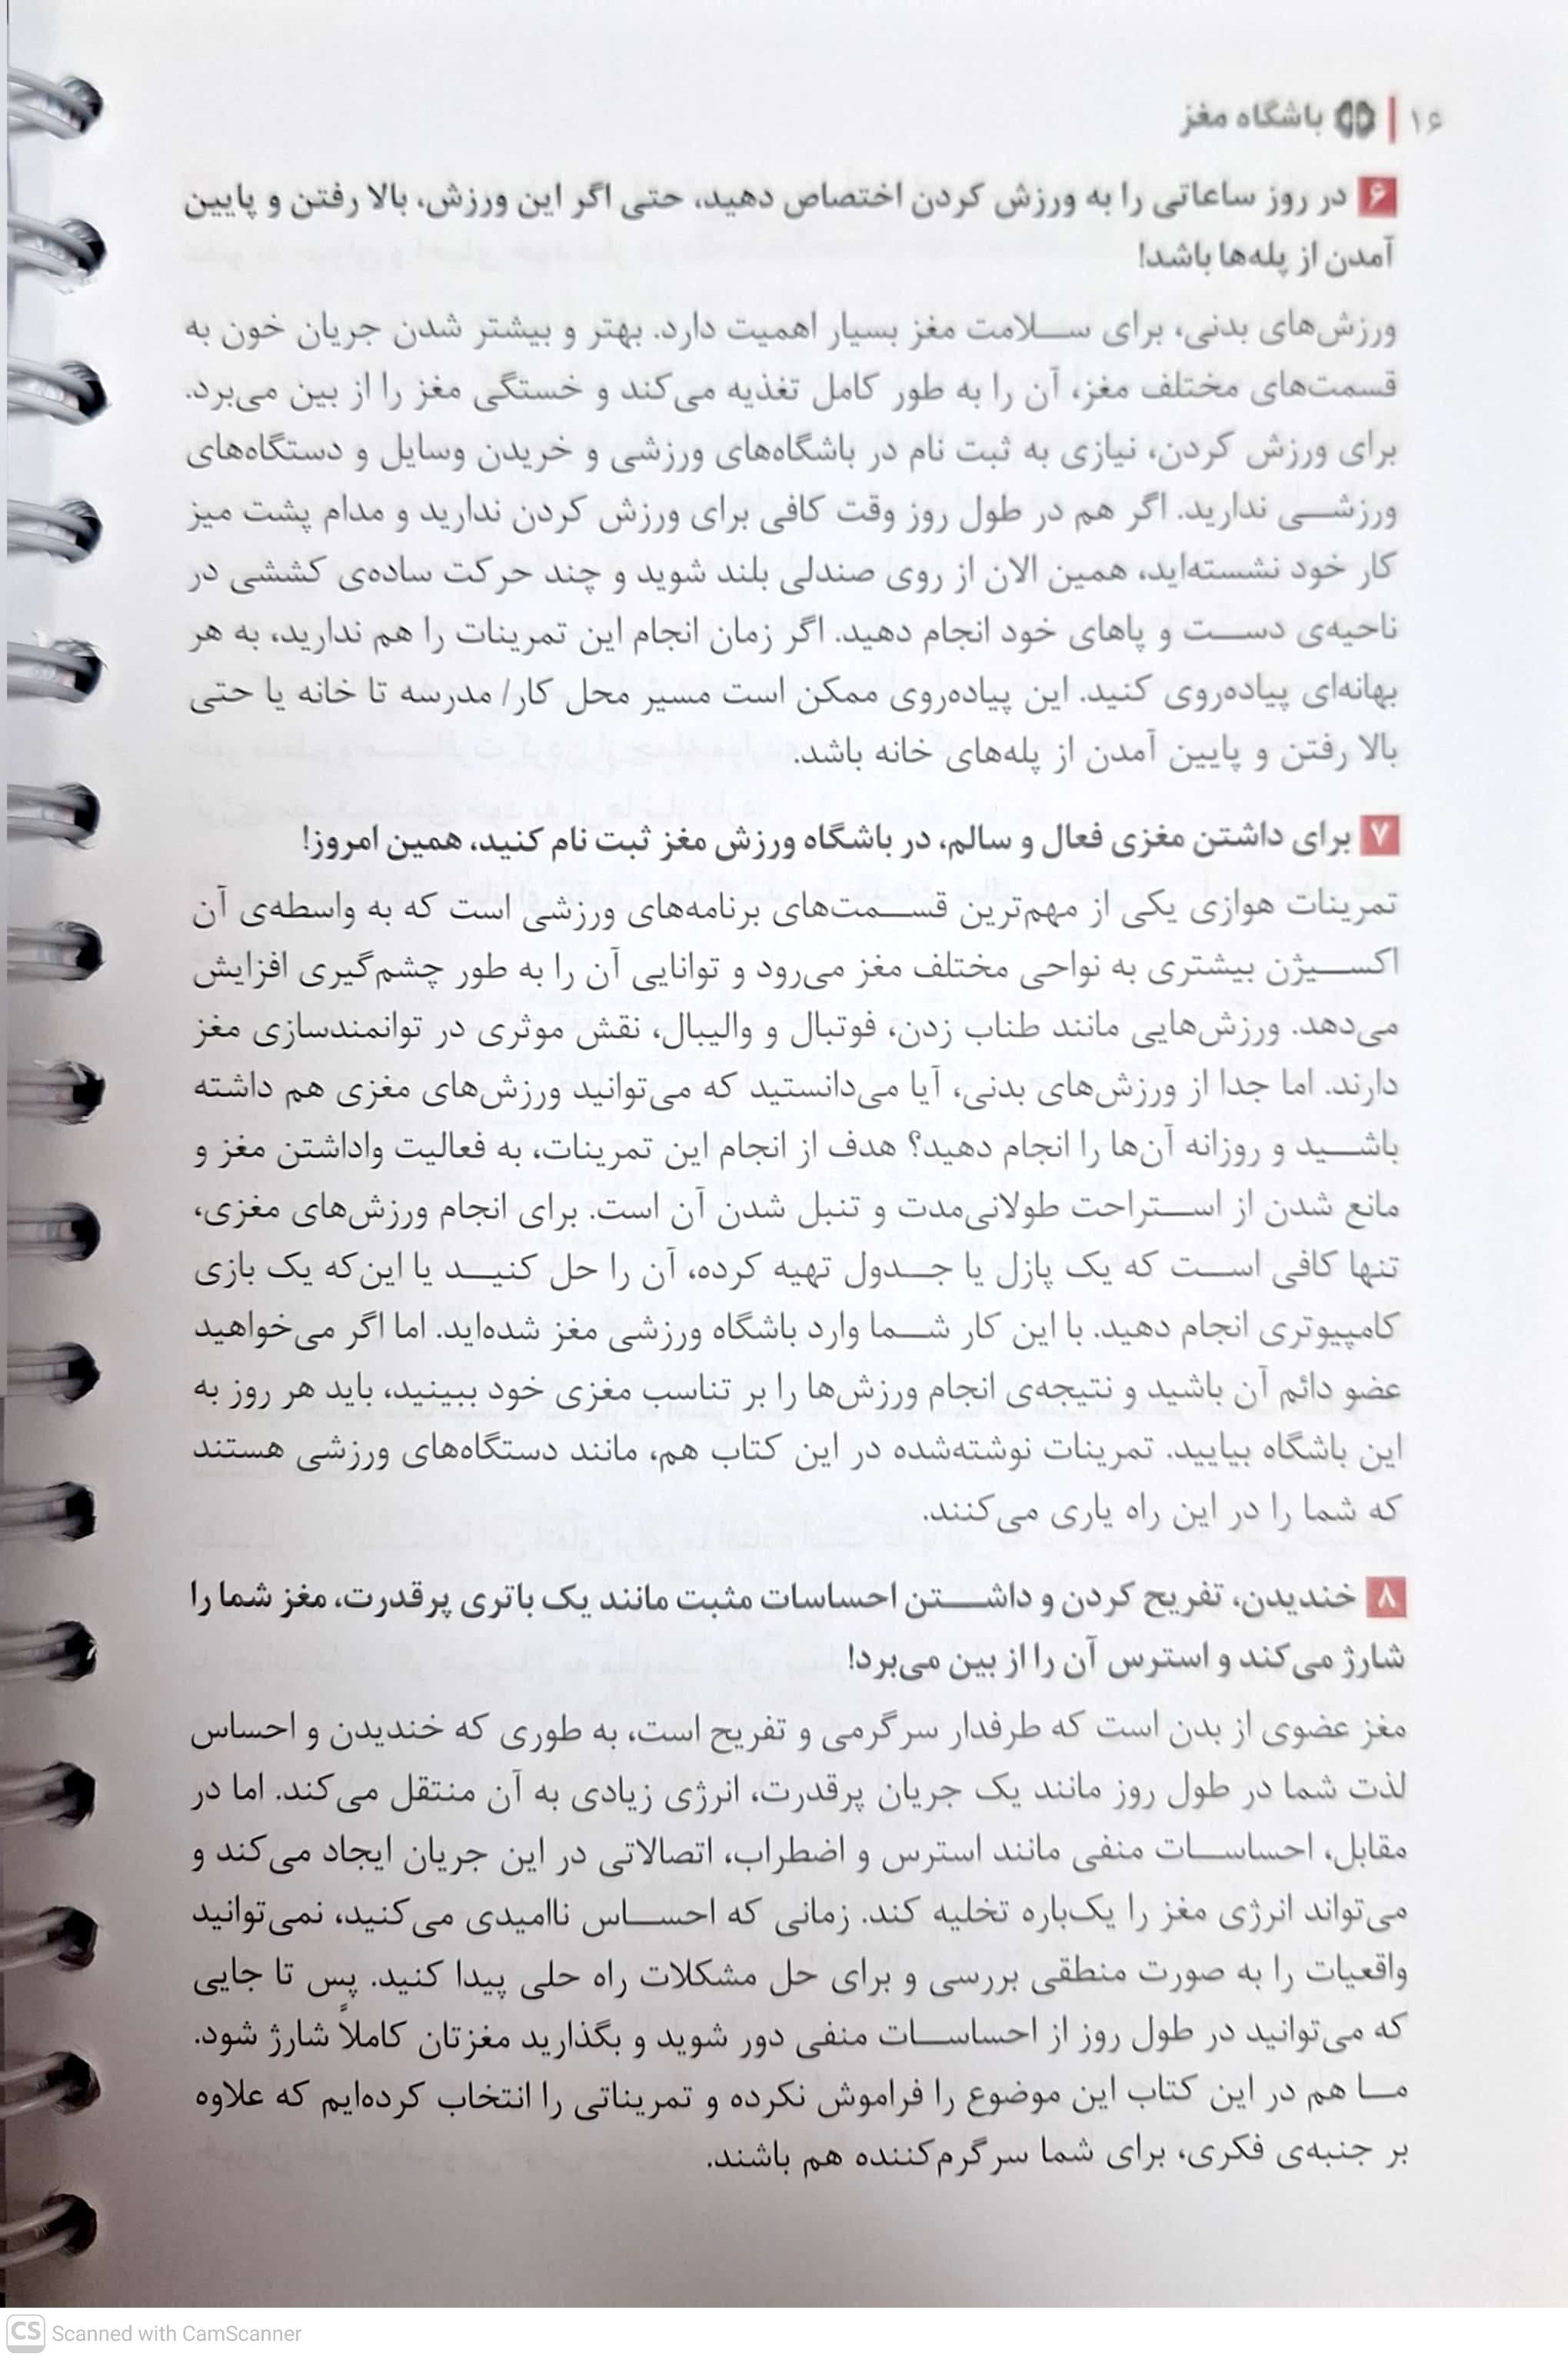 ۱۶ | باشگاه مغز
۶ در روز ساعاتی را به ورزش کردن اختصاص دهید، حتی اگر این ورزش، بالا رفتن و پایین
آمدن از پله‌ها باشد!
ورزش‌های بدنی، برای سلامت مغز بسیار اهمیت دارد. بهتر و بیشتر شدن جریان خون به
قسمت‌های مختلف مغز، آن را به طور کامل تغذیه می‌کند و خستگی مغز را از بین می‌برد.
برای ورزش کردن، نیازی به ثبت نام در باشگاه‌های ورزشی و خریدن وسایل و دستگاه‌های
ورزشی ندارید. اگر هم در طول روز وقت کافی برای ورزش کردن ندارید و مدام پشت میز
کار خود نشسته‌اید، همین الان از روی صندلی بلند شوید و چند حرکت ساده‌ی کششی در
ناحیه‌ی دست و پاهای خود انجام دهید. اگر زمان انجام این تمرینات را هم ندارید، به هر
بهانه‌ای پیاده‌روی کنید. این پیاده‌روی ممکن است مسیر محل کار/ مدرسه تا خانه یا حتی
بالا رفتن و پایین آمدن از پله‌های خانه باشد.
۷ برای داشتن مغزی فعال و سالم، در باشگاه ورزش مغز ثبت نام کنید، همین امروز!
تمرینات هوازی یکی از مهم‌ترین قسمت‌های برنامه‌های ورزشی است که به واسطه‌ی آن
اکسیژن بیشتری به نواحی مختلف مغز می‌رود و توانایی آن را به طور چشم‌گیری افزایش
می‌دهد. ورزش‌هایی مانند طناب زدن، فوتبال و والیبال، نقش موثری در توانمندسازی مغز
دارند. اما جدا از ورزش‌های بدنی، آیا می‌دانستید که می‌توانید ورزش‌های مغزی هم داشته
باشید و روزانه آن‌ها را انجام دهید؟ هدف از انجام این تمرینات، به فعالیت واداشتن مغز و
مانع شدن از استراحت طولانی‌مدت و تنبل شدن آن است. برای انجام ورزش‌های مغزی،
تنها کافی است که یک پازل یا جدول تهیه کرده، آن را حل کنید یا این‌که یک بازی
کامپیوتری انجام دهید. با این کار شما وارد باشگاه ورزشی مغز شده‌اید. اما اگر می‌خواهید
عضو دائم آن باشید و نتیجه‌ی انجام ورزش‌ها را بر تناسب مغزی خود ببینید، باید هر روز به
این باشگاه بیایید. تمرینات نوشته‌شده در این کتاب هم، مانند دستگاه‌های ورزشی هستند
که شما را در این راه یاری می‌کنند.
۸ خندیدن، تفریح کردن و داشتن احساسات مثبت مانند یک باتری پرقدرت، مغز شما را
شارژ می‌کند و استرس آن را از بین می‌برد!
مغز عضوی از بدن است که طرفدار سرگرمی و تفریح است، به طوری که خندیدن و احساس
لذت شما در طول روز مانند یک جریان پرقدرت، انرژی زیادی به آن منتقل می‌کند. اما در
مقابل، احساسات منفی مانند استرس و اضطراب، اتصالاتی در این جریان ایجاد می‌کند و
می‌تواند انرژی مغز را یک‌باره تخلیه کند. زمانی که احساس ناامیدی می‌کنید، نمی‌توانید
واقعیات را به صورت منطقی بررسی و برای حل مشکلات راه حلی پیدا کنید. پس تا جایی
که می‌توانید در طول روز از احساسات منفی دور شوید و بگذارید مغزتان کاملاً شارژ شود.
ما هم در این کتاب این موضوع را فراموش نکرده و تمریناتی را انتخاب کرده‌ایم که علاوه
بر جنبه‌ی فکری، برای شما سرگرم‌کننده هم باشند.
CS Scanned with CamScanner